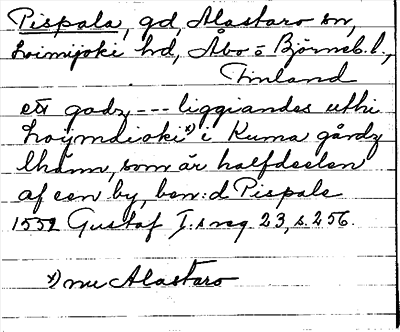 Pispala, gd, Alastaro sn,
Loimijoki hd, Åbo o Björneb. l.,
Finland
ett godz --- liggiandes uthi
Loijmdioki x) i Kuma gårdz
lhänn, som är halfdeelen
af een by, ben:d Pispale
1552 Gustaf I:s reg. 23, s. 256.
x) nu Alastaro